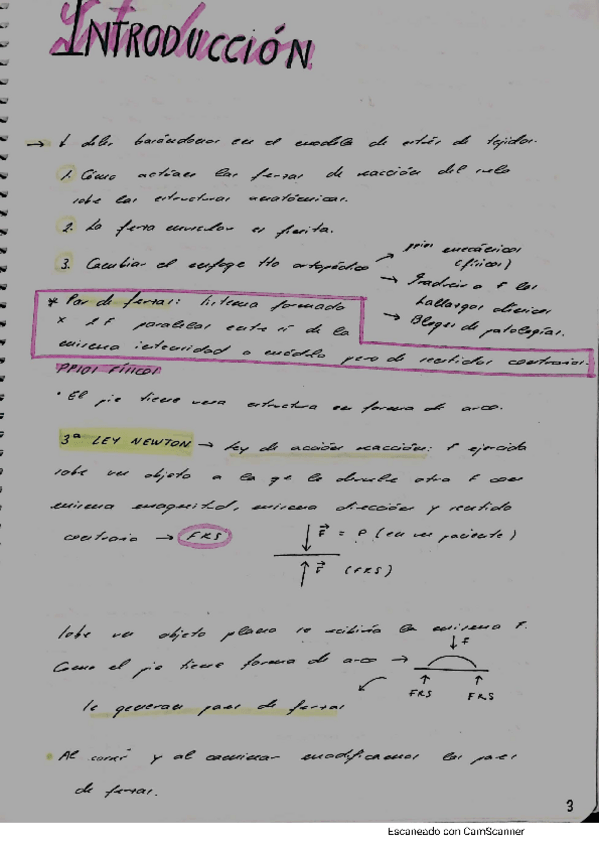 INTRODUCCIÓN
→ F deben basándonos en el modelo de estrés de tejidos.
1. Cómo actúan las fuerzas de reacción del suelo
sobre las estructuras anatómicas.
2. La fuerza muscular es finita.
3. Cambiar el enfoque tto ortopédico
→ ppios mecánicos
(físicos)
→ Traducir a F los
hallazgos clínicos
→ Bloques de patologías.
* Par de fuerzas: sistema formado
x 2 F paralelas entre sí de la
misma intensidad o módulo pero de sentidos contrarios.
PPIOS FÍSICOS
• El pie tiene una estructura en forma de arco.
3ª LEY NEWTON → ley de acción reacción: F ejercida
sobre un objeto a la qe le devuelve otra F con
misma magnitud, misma dirección y sentido
contrario → FRS
F = P (en un paciente)
F (FRS)
Sobre un objeto plano se recibiría la misma F.
Como el pie tiene forma de arco →
F
FRS FRS
Se generan pares de fuerzas
• Al correr y al caminar modificamos los pares
de fuerzas.
3
Escaneado con CamScanner